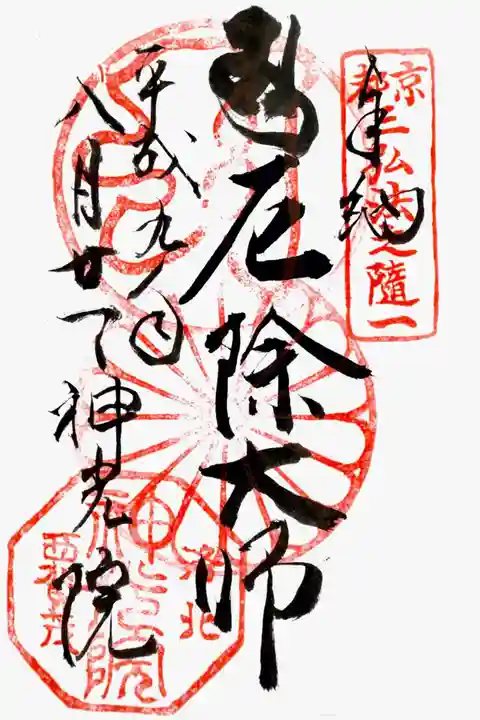 奉納
京都三弘法之随一
厄除大師
平成九年
八月廿一日
神光院
洛北
神光院
西賀茂